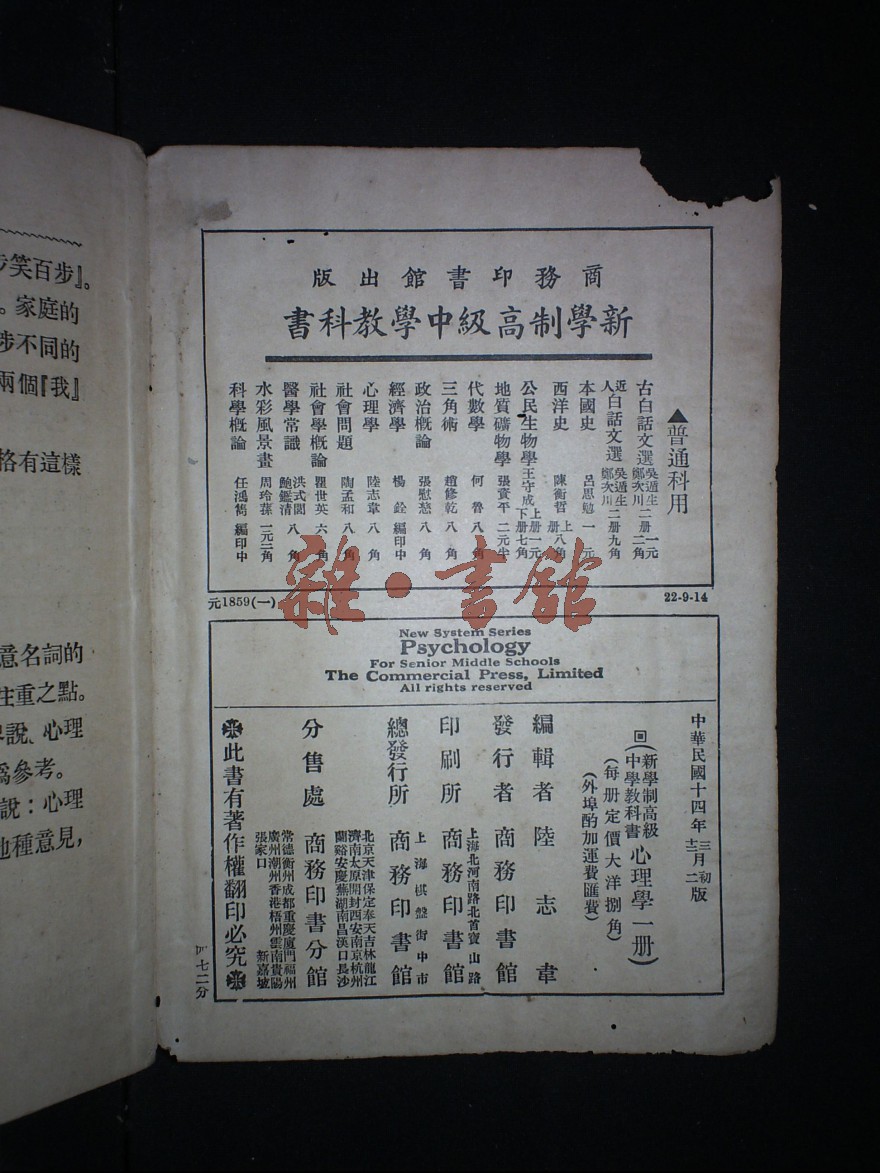 步笑百步』。
。家庭的
步不同的
兩個『我』
格有這樣
意名詞的
注重之點。
說、心理
爲參考。
說：心理
他種意見，
商務印書館出版
新學制高級中學教科書
▲普通科用
古白話文選 吳遁生 鄭次川 二册一元二角
近人白話文選 吳遁生 鄭次川 二册九角
本國史 呂思勉 一元
西洋史 陳衡哲 上册八角
公民生物學 王守成 上册一元 下册七角
地質礦物學 張資平 二元半
代數學 何魯 八角
三角術 趙修乾 八角
政治概論 張慰慈 八角
經濟學 楊銓 編印中
心理學 陸志韋 八角
社會問題 陶孟和 八角
社會學概論 瞿世英 六角
醫學常識 洪式閭 鮑鑑清 八角
水彩風景畫 周玲蓀 二元二角
科學概論 任鴻雋 編印中
元1859(一)
22-9-14
雜·書館
New System Series
Psychology
For Senior Middle Schools
The Commercial Press, Limited
All rights reserved
中華民國十四年三月初版
十二月二版
回(新學制高級中學教科書 心理學一册)
(每册定價大洋捌角)
(外埠酌加運費匯費)
編輯者 陸志韋
發行者 商務印書館
上海北河南路北首寶山路
印刷所 商務印書館
上海棋盤街中市
總發行所 商務印書館
北京天津保定奉天吉林龍江
濟南太原開封西安南京杭州
蘭谿安慶蕪湖南昌漢口長沙
分售處 商務印書分館
常德衡州成都重慶廈門福州
廣州潮州香港梧州雲南貴陽
張家口 新嘉坡
此書有著作權翻印必究
七二分